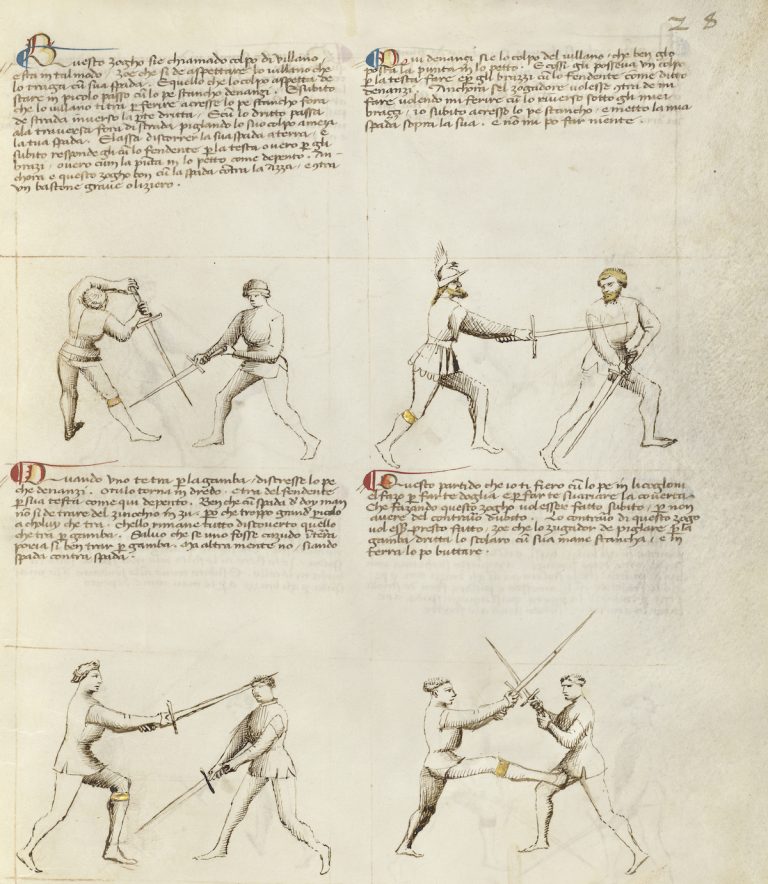 28
Questo zogho sie chiamado colpo di villano,
e sta in tal modo, zoe che si de aspettare lo villano che
lo traga cum sua spada. E quello che lo colpo aspetta de
stare in picolo passo cum lo pe stancho denanzi. E subito
che lo villano ti tra per ferire acresse lo pe stancho fora
de strada inverso la parte dritta. E cum lo dritto passa
ala traversa fora di strada, pigliando lo suo colpo a meza
la tua spada. E lassa discorrer la sua spada a terra, e
subito responde gli cum lo fendente per la testa overo per gli
brazzi, overo cum la punta in lo petto come depento. An-
chora e questo zogho bon cum la spada contra la azza, e contra
un bastone grave o liziero.
Qui denanzi sie lo colpo del villano, che ben glo
posta la punta in lo petto. E cossi gli posseva un colpo
per la testa fare e per gli brazzi cum lo fendente come ditto
denanzi. Anchora sel zogadore volesse contra de mi
fare volendo mi ferire cum lo riverso sotto gli miei
brazzi, io subito acresco lo pe stancho, e metto la mia
spada sopra la sua. E non mi po far niente.
Quando uno te tra per la gamba, discresse lo pe
che denanzi. O tu lo torna in dredo, e tra del fendente
per sua testa come qui depento. Ben che cum spada da doy man
non si de trare del zinochio in zu, per che troppo grand' pericolo
a choluy che tra. Chello rimane tutto discoverto quello
che tra per gamba. Salvo che se uno fosse cazudo in terra
poria si ben trar per gamba. Ma altra mente no, siando
spada contra spada.
Questo partido che io ti fiero cum lo pe in li cogloni
el fazo per far te doglia, e per far te svariare la coverta.
Che fazando questo zogho vol essere fatto subito, per non
avere del contrario dubito. Lo contrario di questo zogo
vol esser presto fatto, zoe che lo zugador de piglare per la
gamba dritta lo scolaro cum sua mane stancha, e in
terra lo po buttare.